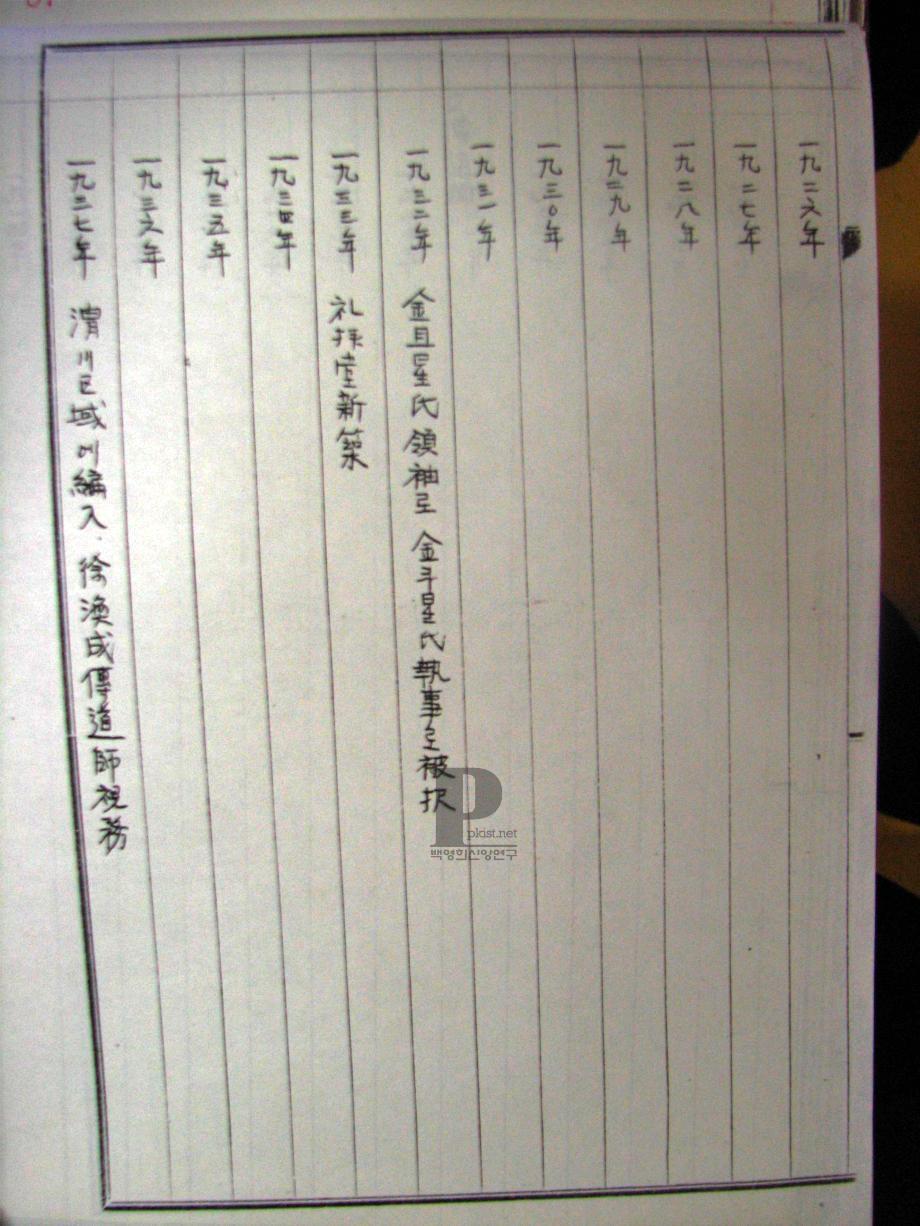 一九二六年
一九二七年
一九二八年
一九二九年
一九三〇年
一九三一年
一九三二年 金且星氏領袖로 金斗星氏執事로被択
一九三三年 礼拝堂新築
一九三四年
一九三五年
一九三六年
一九三七年 渭川区域에編入. 徐渙成傳道師視務
pkist.net
백영희신앙연구